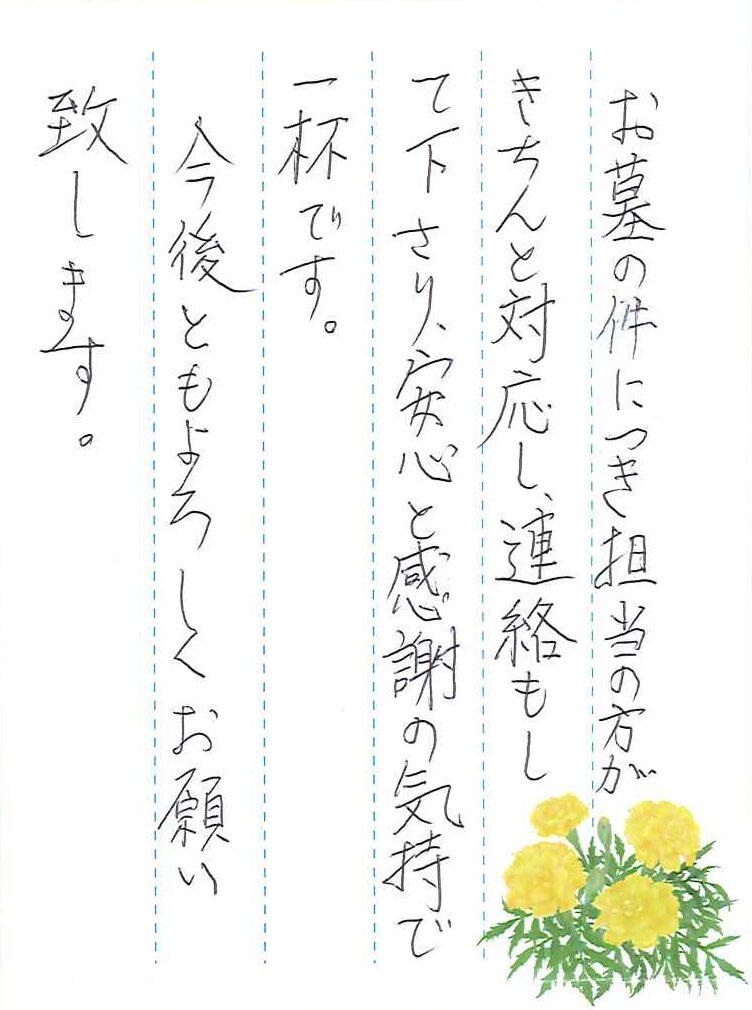 お墓の件につき担当の方が
きちんと対応し、連絡もし
て下さり、安心と感謝の気持で
一杯です。
今後ともよろしくお願い
致します。